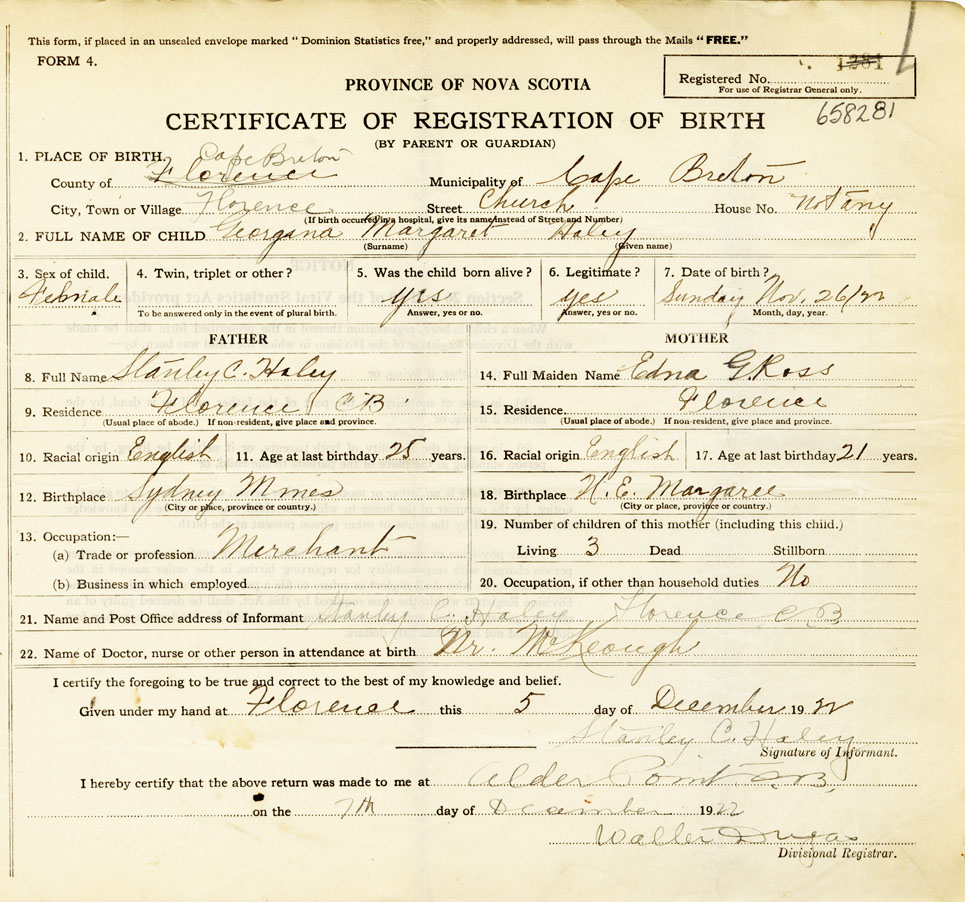 This form, if placed in an unsealed envelope marked "Dominion Statistics free," and properly addressed, will pass through the Mails "FREE."
FORM 4.
1281
Registered No.
For use of Registrar General only.
PROVINCE OF NOVA SCOTIA
658281
CERTIFICATE OF REGISTRATION OF BIRTH
(BY PARENT OR GUARDIAN)
1. PLACE OF BIRTH. Cape Breton
County of Florence Municipality of Cape Breton
City, Town or Village Florence Street Church House No. Not any
(If birth occurred in a hospital, give its name instead of Street and Number)
2. FULL NAME OF CHILD Georgana Margaret Haley
(Surname) (Given name)
3. Sex of child. 4. Twin, triplet or other? 5. Was the child born alive? 6. Legitimate? 7. Date of birth?
Female yes yes Sunday Nov. 26/22
To be answered only in the event of plural birth. Answer, yes or no. Answer, yes or no. Month, day, year.
FATHER MOTHER
8. Full Name Stanley C. Haley 14. Full Maiden Name Edna G. Ross
9. Residence Florence C B 15. Residence. Florence
(Usual place of abode.) If non-resident, give place and province. (Usual place of abode.) If non-resident, give place and province.
10. Racial origin English 11. Age at last birthday 25 years. 16. Racial origin English 17. Age at last birthday 21 years.
12. Birthplace Sydney Mines 18. Birthplace N. E. Margaree
(City or place, province or country.) (City or place, province or country.)
19. Number of children of this mother (including this child.)
13. Occupation:—
(a) Trade or profession Merchant Living 3 Dead Stillborn
(b) Business in which employed 20. Occupation, if other than household duties No
21. Name and Post Office address of Informant Stanley C. Haley Florence C B
22. Name of Doctor, nurse or other person in attendance at birth Dr. McKeough
I certify the foregoing to be true and correct to the best of my knowledge and belief.
Given under my hand at Florence this 5 day of December 1922
Stanley C. Haley
Signature of Informant.
I hereby certify that the above return was made to me at Alder Point C.B.
on the 7th day of December 1922
Walter Dugas
Divisional Registrar.